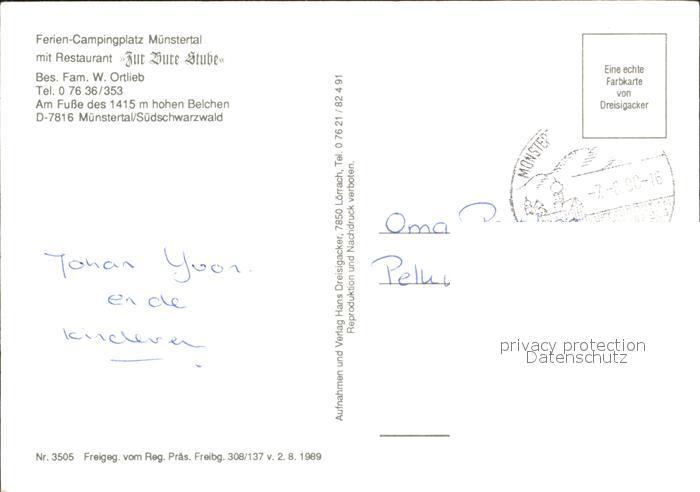 Ferien-Campingplatz Münstertal
mit Restaurant »Zur Bure Stube«
Bes. Fam. W. Ortlieb
Tel. 0 76 36/353
Am Fuße des 1415 m hohen Belchen
D-7816 Münstertal/Südschwarzwald
Johan Yvon.
en de
kinderen
Nr. 3505 Freigeg. vom Reg. Präs. Freibg. 308/137 v. 2. 8. 1989
Aufnahmen und Verlag Hans Dreisigacker, 7850 Lörrach, Tel. 0 76 21 / 82 4 91
Reproduktion und Nachdruck verboten.
Eine echte
Farbkarte
von
Dreisigacker
MÜNSTERT
Oma
privacy protection
Datenschutz